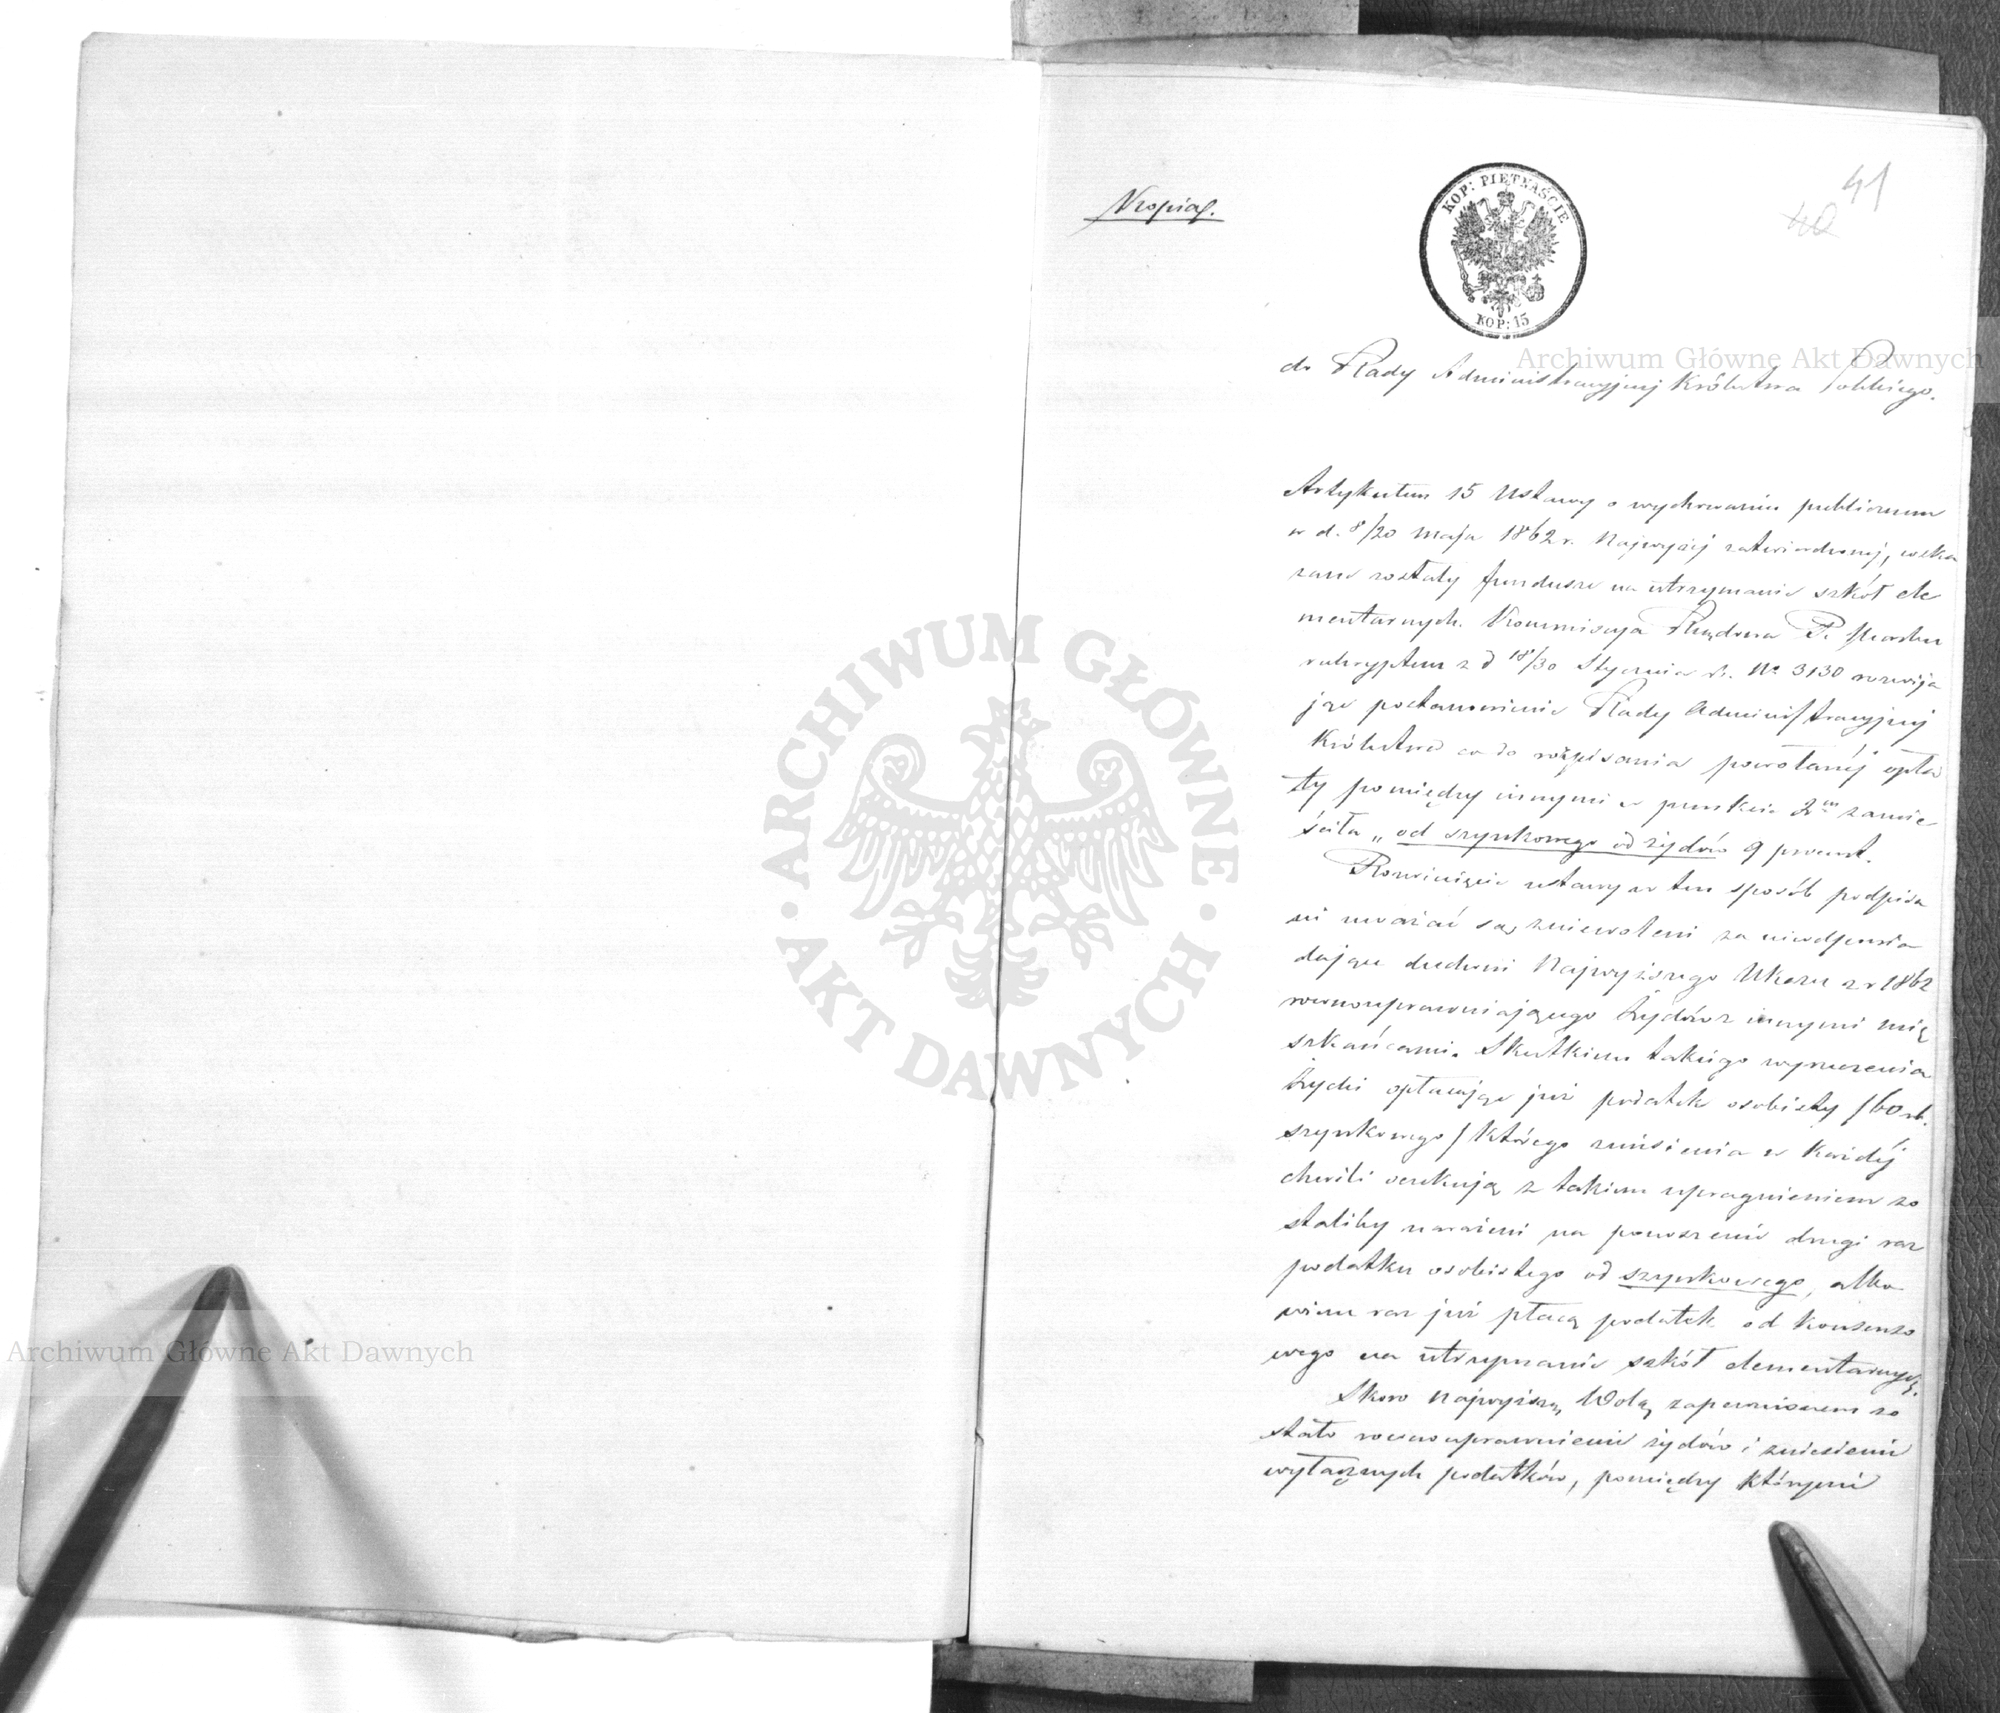 Kopia.
41
40
KOP: PIĘTNAŚCIE
KOP: 15
do Rady Administracyjnej Królestwa Polskiego.
Artykułem 15 Ustawy o wychowaniu publicznem
w d. 8/20 maja 1862 r. Najwyżej zatwierdzonej, wska
zane zostały fundusze na utrzymanie szkół ele
mentarnych. Kommissya Rządowa P. i Skarbu
reskryptem z d 18/30 Stycznia r. No 3130 rozwija
jąc postanowienie Rady Administracyjnej
Królestwa co do rozpisania powołanéj opła
ty pomiędzy innymi w punkcie 2m zamie
ściła „od szynkowego od żydów 9 procent.
Rozwinięcie ustawy w ten sposób podpisa
ni uważać są zniewoleni za nieodpowia
dające duchowi Najwyższego Ukazu z r 1862
rownouprawniającego Żydów z innymi mię
szkańcami. Skutkiem takiego wyrzeczenia
Żydzi opłacając już podatek osobisty /60 rb.
szynkowego/ którego zniesienia w każdéj
chwili oczekują z takiem upragnieniem zo
staliby narażeni na ponoszenie drugi raz
podatku osobistego od szynkowego, albo
wiem raz już płacą podatek od konsenso
wego na utrzymanie szkół elementarnych.
Skoro Najwyższą Wolą zapewnionem zo
stało rownouprawnienie żydów i zniesienie
wyłącznych podatków, pomiędzy któremi
ARCHIWUM GŁÓWNE
AKT DAWNYCH
Archiwum Główne Akt Dawnych
Archiwum Główne Akt Dawnych